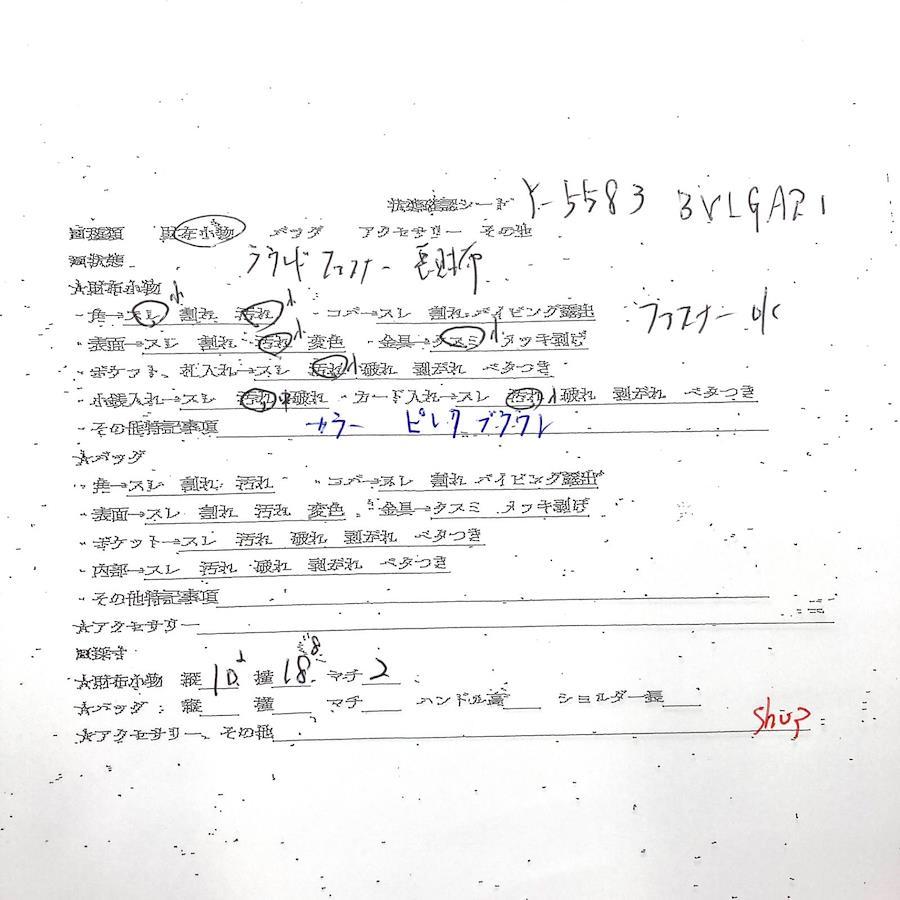 状態確認シート Y-5583 BVLGARI
■種類 財布小物 バッグ アクセサリー その他
■状態 ラウンドファスナー 長財布
★財布小物
・角→スレ小 割れ 汚れ小 ・コバ→スレ 割れ パイピング露出 ファスナー ok
・表面→スレ 割れ 汚れ小 変色 ・金具→クスミ小 メッキ剥げ
・ポケット、札入れ→スレ 汚れ小 破れ 剥がれ ベタつき
・小銭入れ→スレ 汚れ中 破れ ・カード入れ→スレ 汚れ小 破れ 剥がれ ベタつき
・その他特記事項 カラー ピンク ブラウン
★バッグ
・角→スレ 割れ 汚れ ・コバ→スレ 割れ パイピング露出
・表面→スレ 割れ 汚れ 変色 ・金具→クスミ メッキ剥げ
・ポケット→スレ 汚れ 破れ 剥がれ ベタつき
・内部→スレ 汚れ 破れ 剥がれ ベタつき
・その他特記事項
★アクセサリー
■採寸
★財布小物 縦 10 横 18.8 マチ 2
★バッグ：縦 横 マチ ハンドル高 ショルダー長
★アクセサリー、その他
Shop